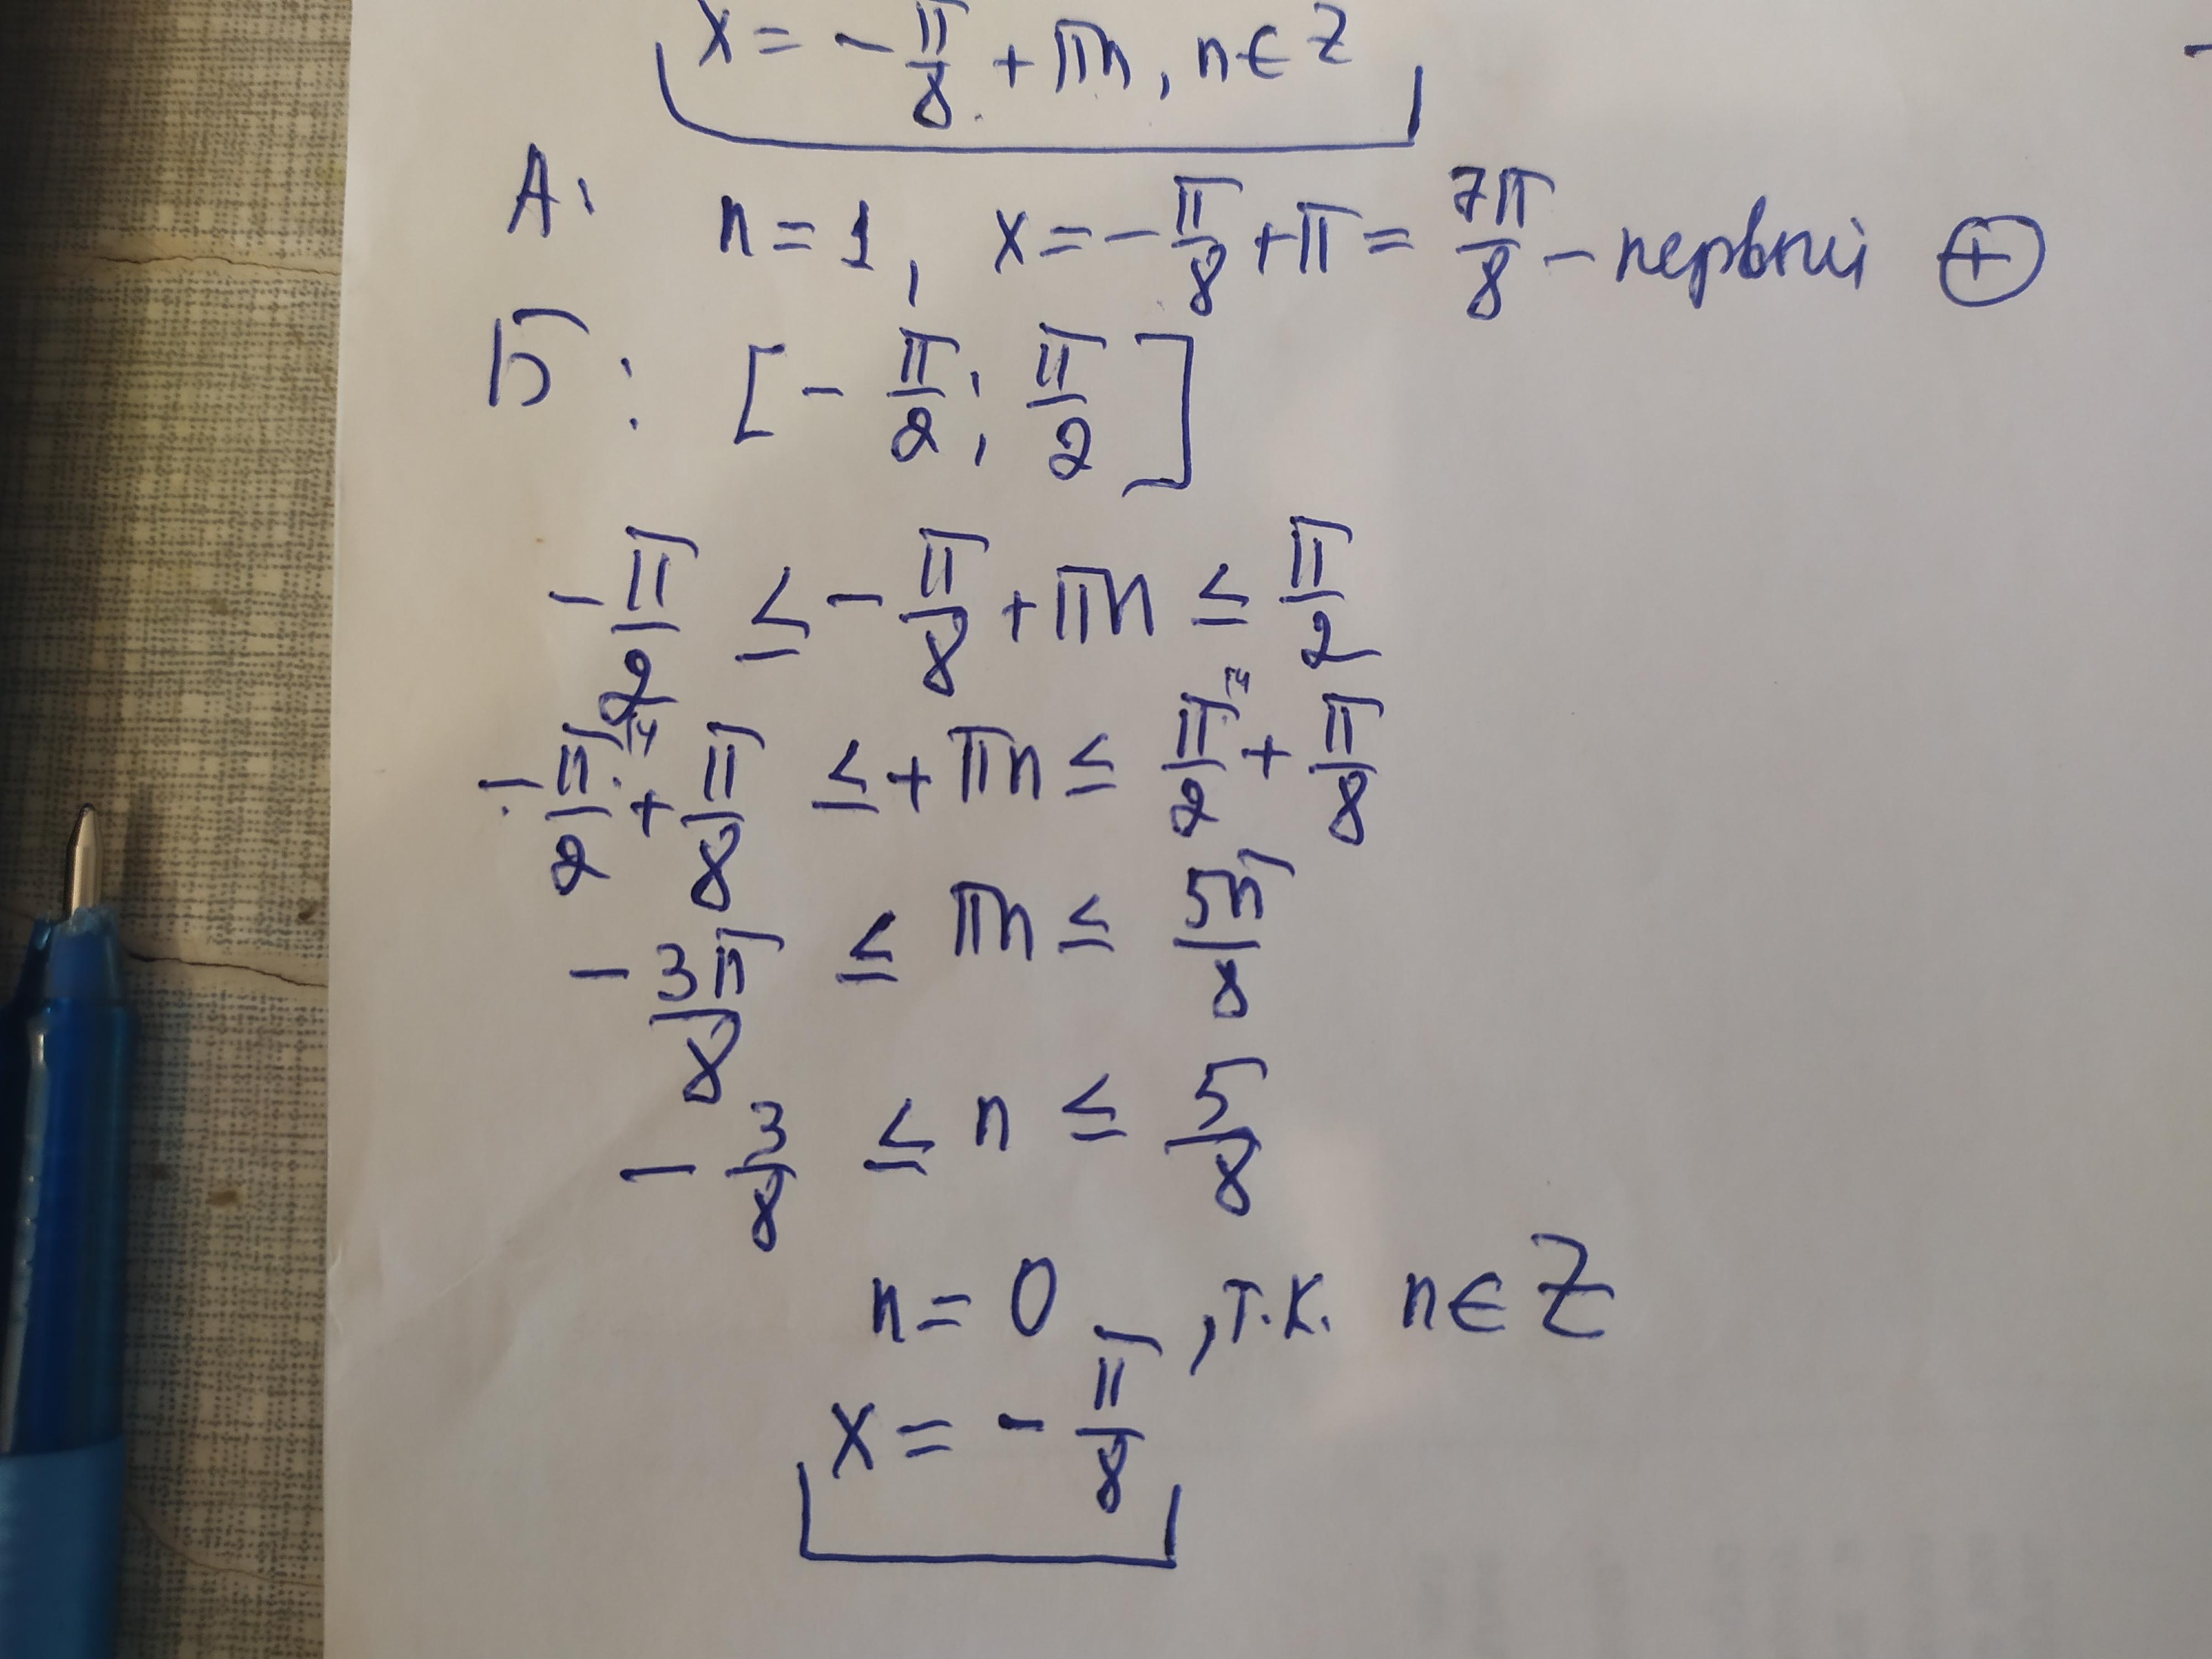 x = - π/8 + πn, n ∈ Z
А: n = 1, x = - π/8 + π = 7π/8 - первый ⊕
Б: [- π/2; π/2]
- π/2 ≤ - π/8 + πn ≤ π/2
- π/2 + π/8 ≤ + πn ≤ π/2 + π/8
- 3π/8 ≤ πn ≤ 5π/8
- 3/8 ≤ n ≤ 5/8
n = 0, т.к. n ∈ Z
x = - π/8